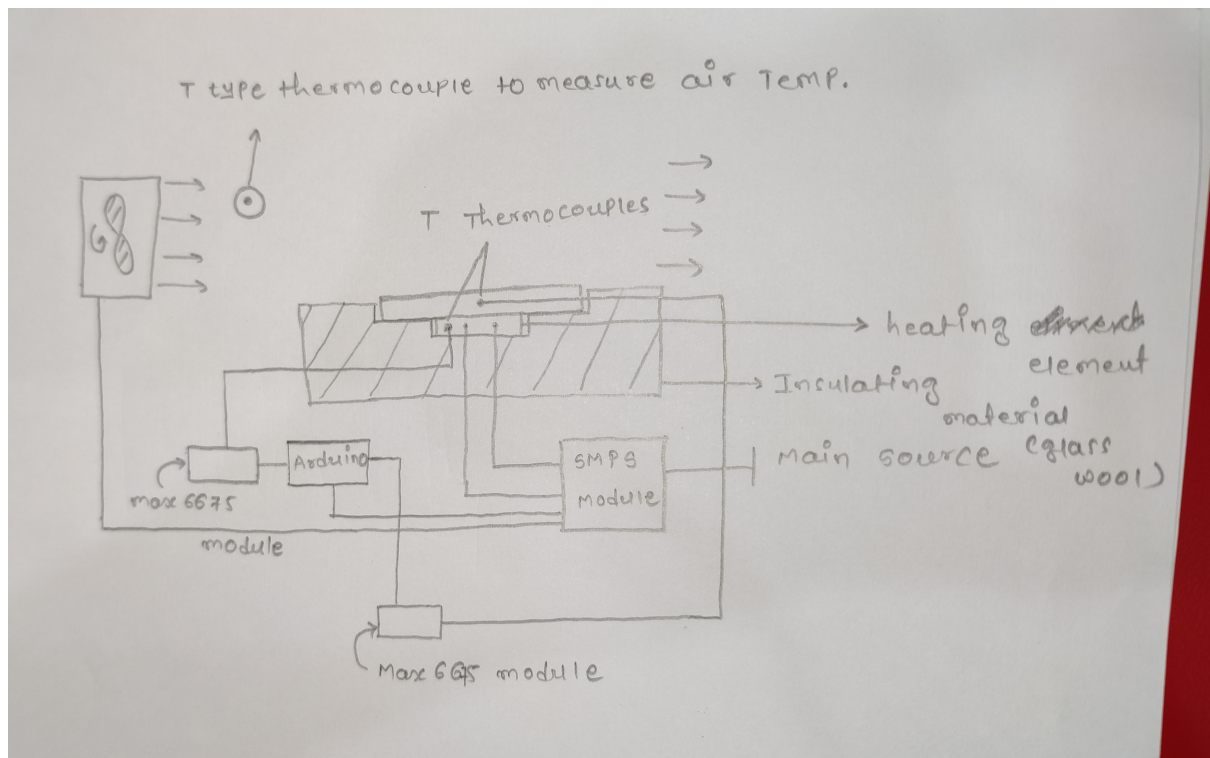 T type thermocouple to measure air Temp.
T Thermocouples
heating
element
Insulating
material
(glass
wool)
Main source
SMPS
Module
Arduino
Max 6675
module
Max 6675 module